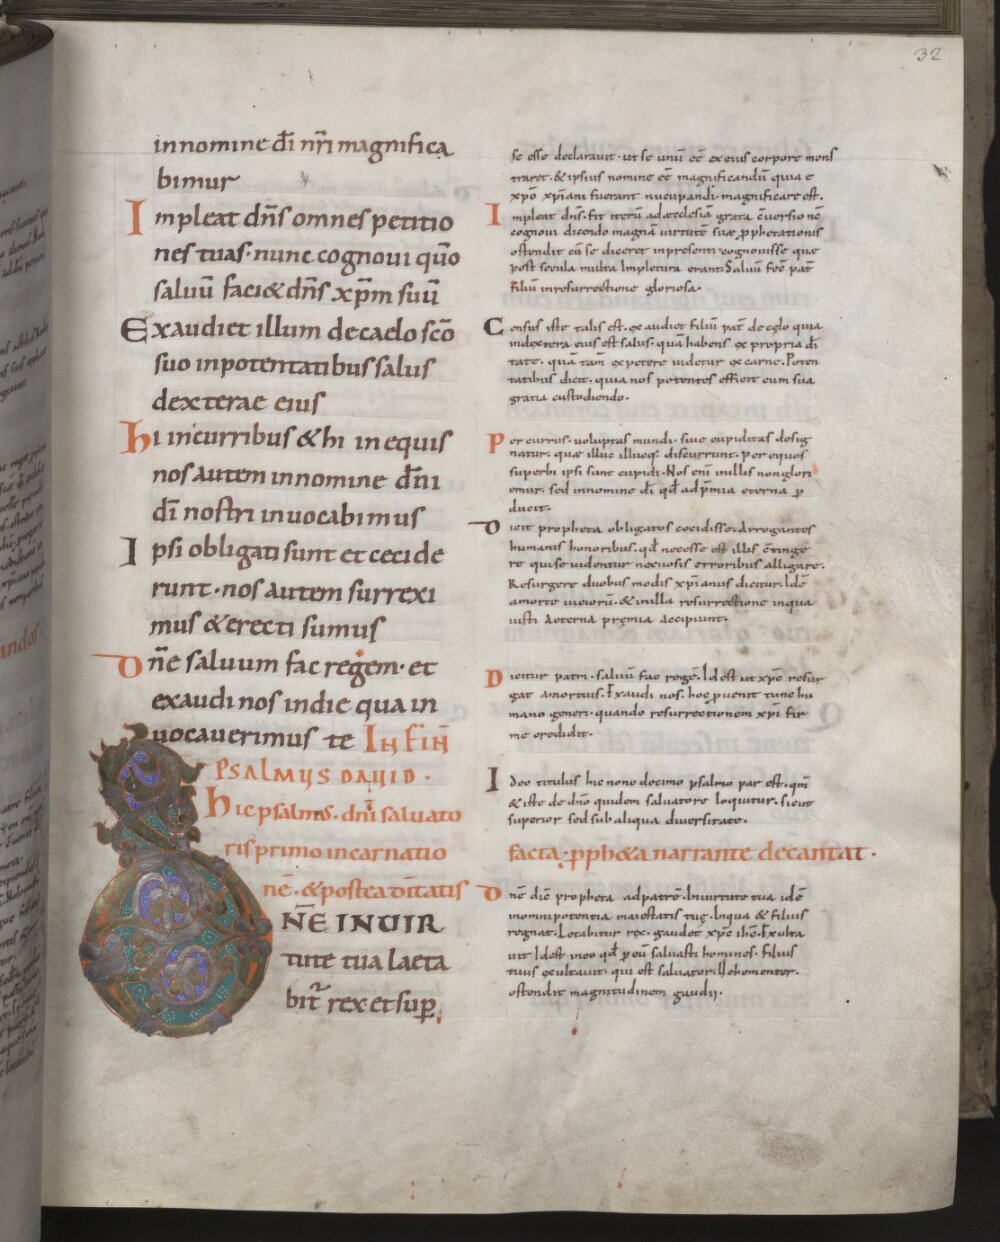 32
in nomine dī nr̄i magnifica
bimur
Impleat dn̄s omnes petitio
nes tuas · nunc cognoui qūo
saluū faci& dn̄s xp̄m suū
Exaudiet illum decaelo sc̄o
suo inpotentatibus salus
dexterae eius
hi incurribus & hi inequis
nos autem innomine dn̄i
dī nostri inuocabimus
Ipsi obligati sunt et cecide
runt · nos autem surrexi
mus & erecti sumus
Dn̄e saluum fac regem · et
exaudi nos indie qua in
uocauerimus te IN FIN̄
PSALMUS DAVID ·
hic psalmus · dn̄i saluato
ris primo incarnatio
nē · & postea diītatis
N̄E INVIR
tute tua laeta
bit̄ rex et sup̱
se esse declarauit · ut se unū eē ex eius corpore mons
traret · & ipsius nomine eē magnificandū quia e
xp̄o xp̄iani fuerant nucupandi · magnificare est ·
Impleat dn̄s · fit iterū ad aecclesiā grata c̄uersio
cognoui dicendo magnā uirtutem suae p̱phetationis
ostendit cū se diceret inpresenti cognouisse que
post secula multa impletura erant · Saluū fec̄ pat̄
filiū inresurrectione gloriosa ·
Census iste talis est · exaudiet filiū pat̄ de celo quia
indextera eius est salus · quā habens ex propria di
tate · quā tam̄ expetere uidetur ex carne · Poten
tatibus dicit · quia nos potentes efficit cum sua
gratia custodiendo ·
Per currus · uoluptas mundi · siue cupiditas desig
natur · quae illuc illucq; discurrunt · per equos
superbi ipsi sunt cupidi · Nos eni inillis non glori
emur · sed innomine dī qd̄ ad p̄mia eterna p̱
ducit ·
Dicit propheta obligatos cecidisse · arrogantes
humanis honoribus · qd̄ necesse est illis c̄tinge
re quise uidentur nexuosis erroribus alligare ·
Resurgere duobus modis xp̄ianus dicitur · Idē
amorte uiciorū · & inilla resurrectione inqua
iusti aeterna p̄mia accipiunt ·
Dicitur patri · saluū fac regē · Id est ut xp̄c resur
gat amortuis · Exaudi nos · hoc p̱uenit tunc hu
mano generi · quando resurrectionem xp̄i fir
me credidit ·
Ideo titulus hic nono decimo psalmo par est · qm̄
& iste de dn̄o quidem saluatore loquitur · sicut
superior sed sub aliqua diuersitate ·
facta · p̱ph&a narrante decantat ·
Dn̄e dic̄ propheta ad patrē · Inuirtute tua idē
inomnipotentia maiestatis tuę · Inqua & filius
regnat · Letabitur rex · gaudet xp̄c ih̄c · Exulta
uit Id est ineo qd̄ p̱ eū saluasti homines · filius
tuus exultauit · qui est saluator · Uehementer ·
ostendit magnitudinem gaudii ·